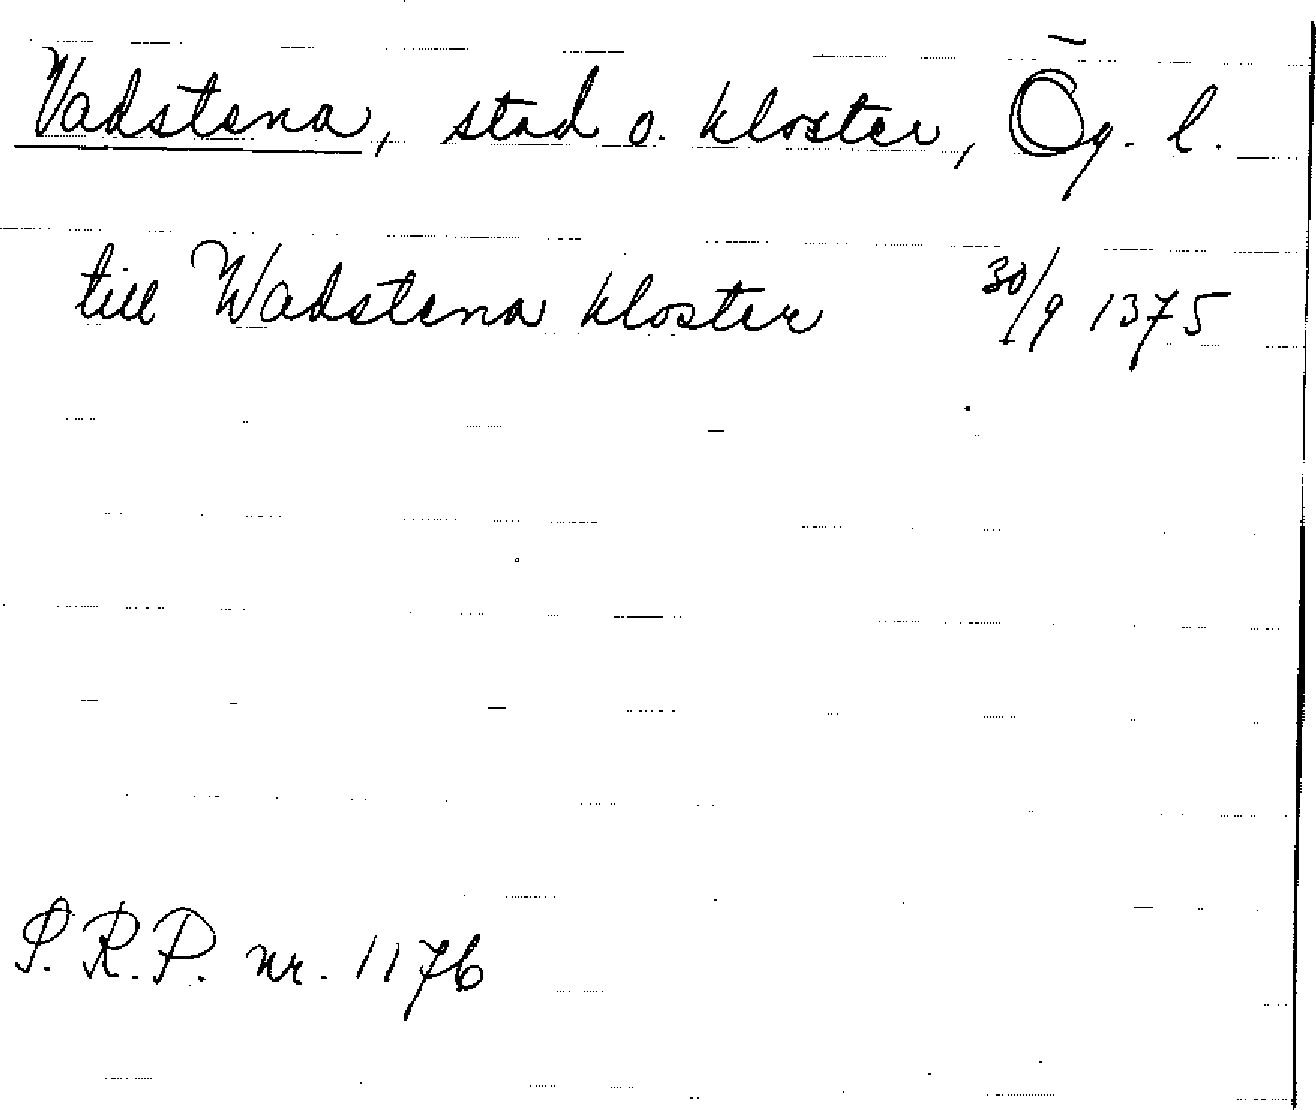 Vadstena, stad o. kloster, Ög. l.
till Wadstena kloster 30/9 1375
S.R.P. nr. 1176